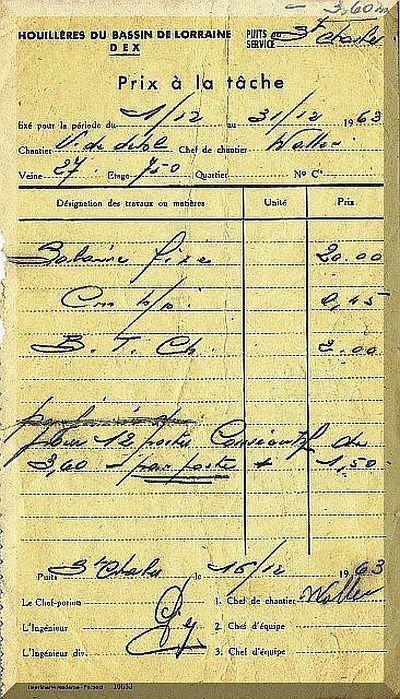 3,60 m
HOUILLÈRES DU BASSIN DE LORRAINE PUITS OU SERVICE St Charles
DEX
Prix à la tâche
fixé pour la période du 1/12 au 31/12 1963
Chantier Chef de chantier
Veine 27 Etage 750 Quartier N° C'
Désignation des travaux ou matières Unité Prix
Salaire fixe 20.00
0,45
B. T. Ch 2.00
pour 12 postes Consécutifs de
3,60 par poste + 1,50
Puits St Charles le 16/12 1963
Le Chef-porion 1. Chef de chantier
L'Ingénieur 2. Chef d'équipe
L'Ingénieur div. 3. Chef d'équipe
Imprimerie Moderne - Forbach